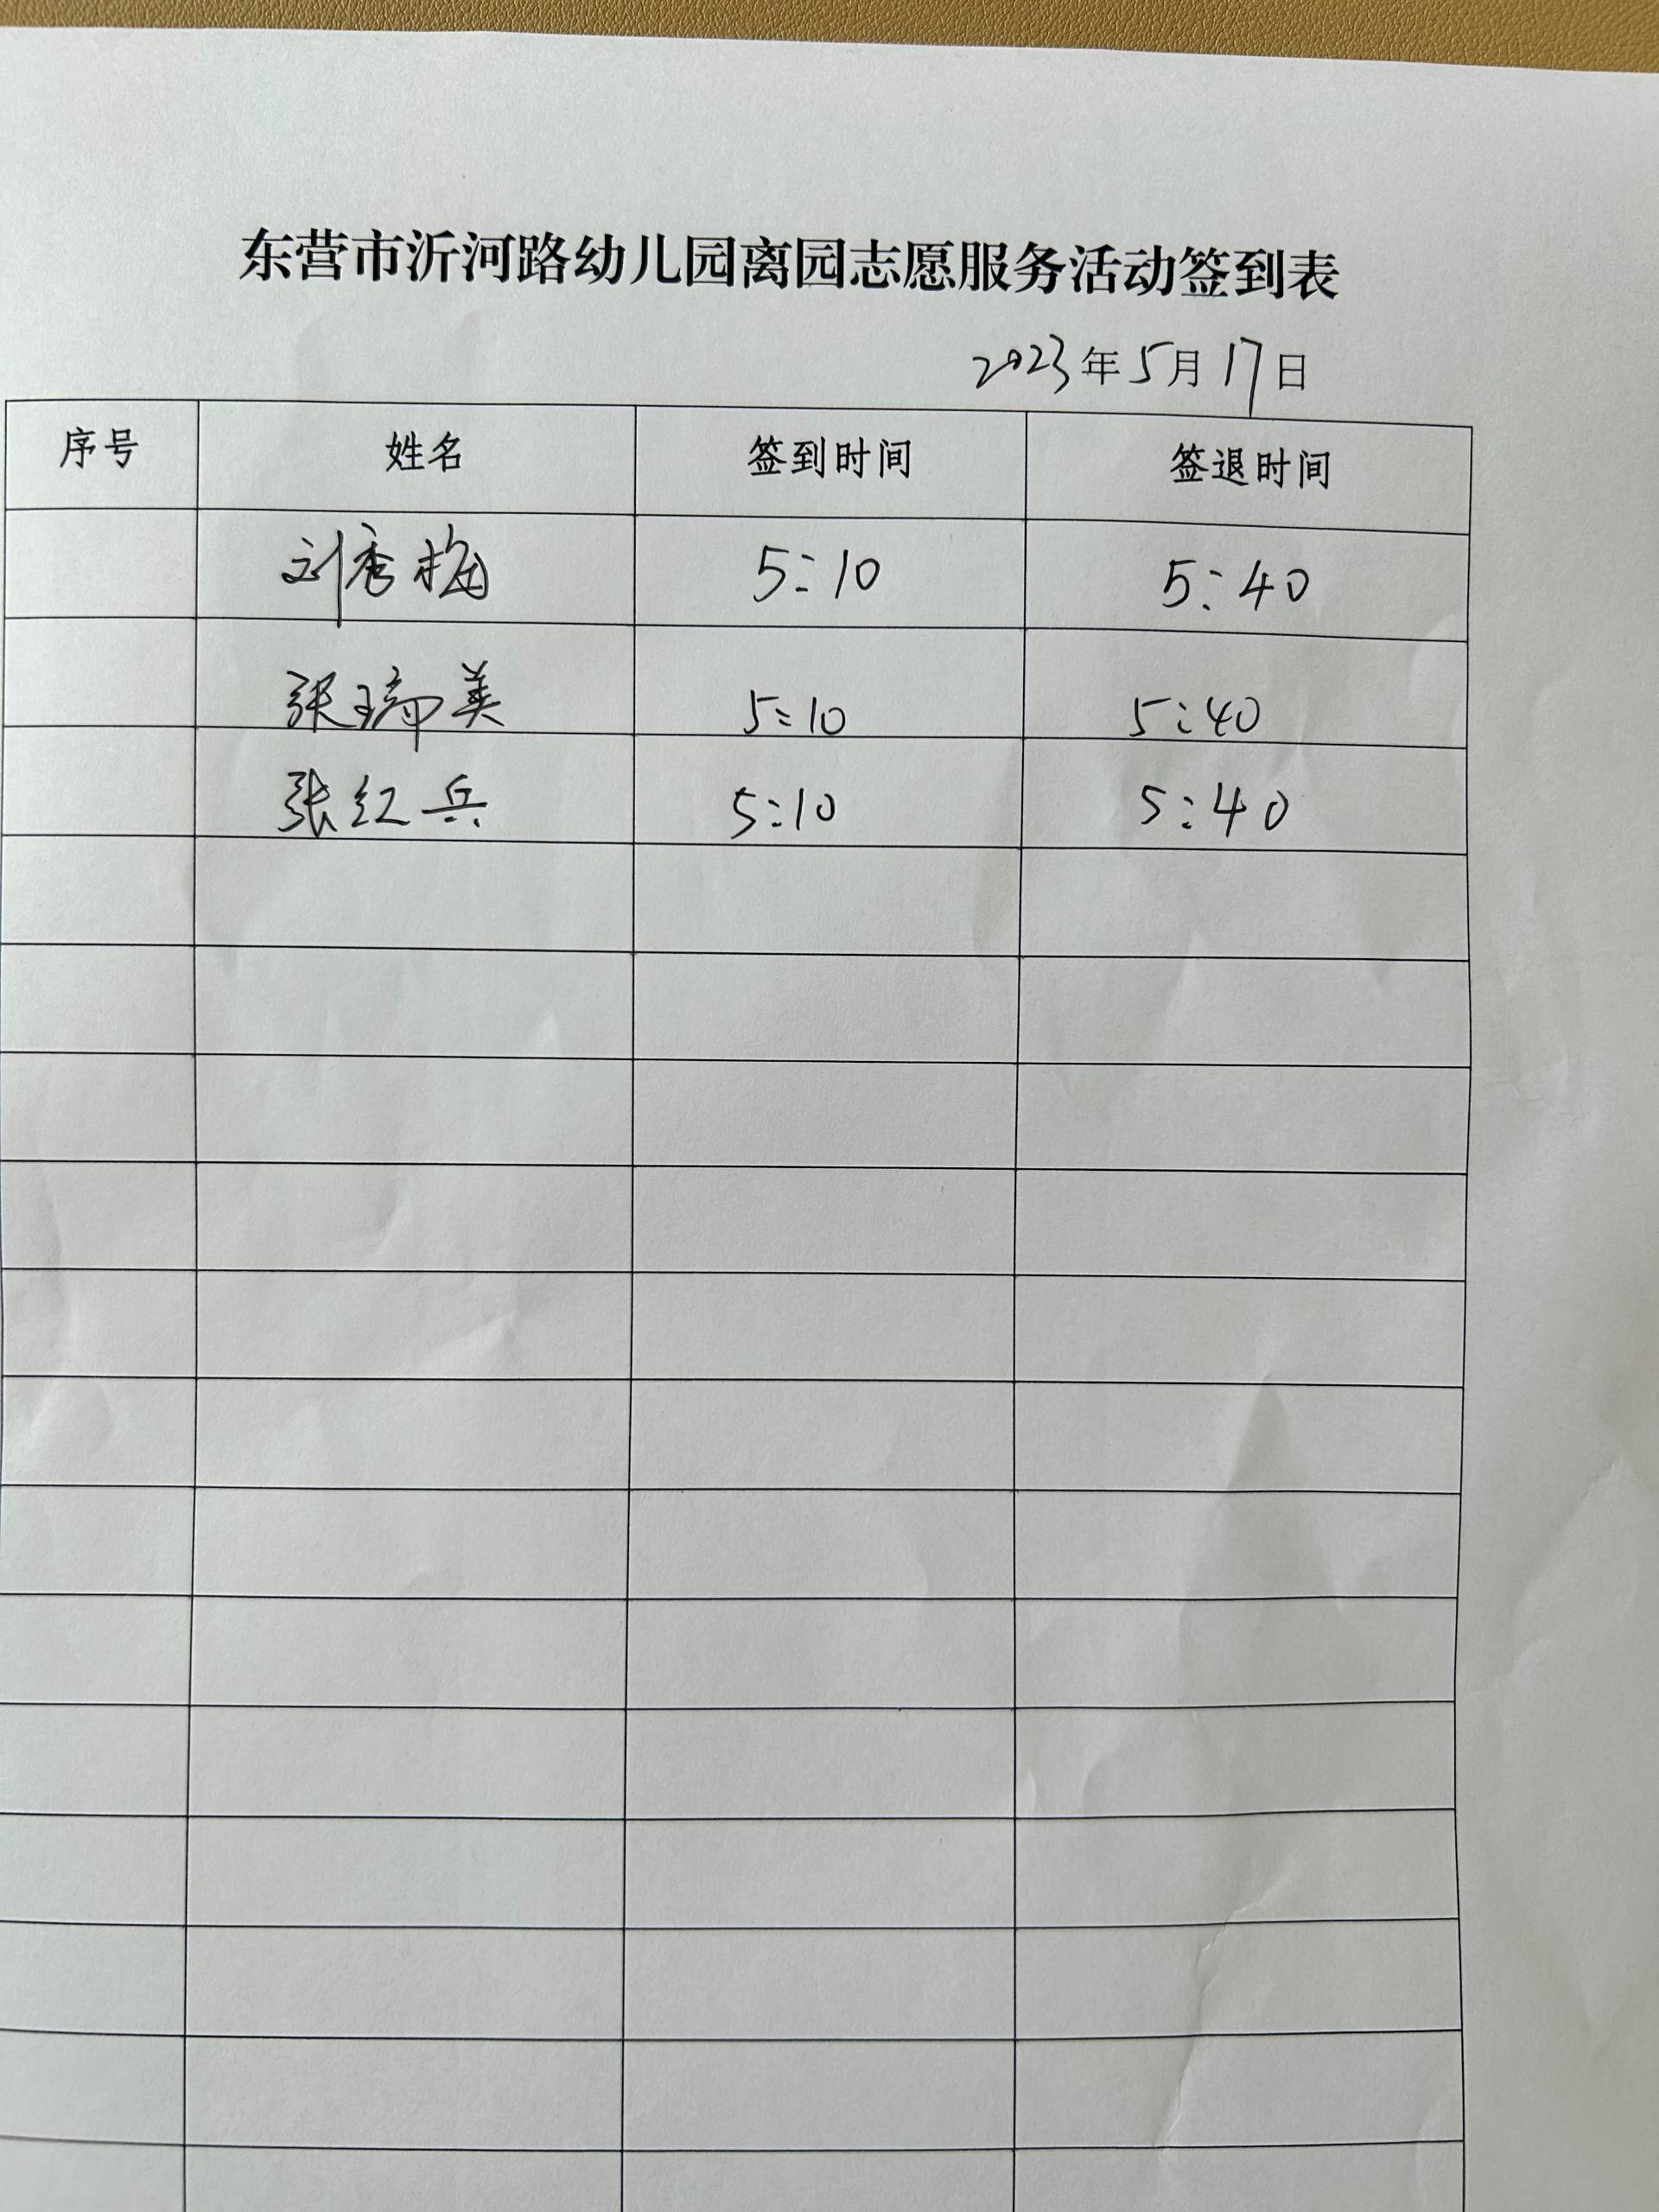 东营市沂河路幼儿园离园志愿服务活动签到表
2023年5月17日
序号 姓名 签到时间 签退时间
刘秀梅 5:10 5:40
张瑞美 5:10 5:40
张红兵 5:10 5:40